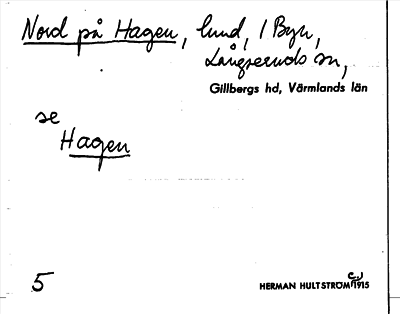 Nord på Hagen, lund, / Byn,
Långseruds sn,
Gillbergs hd, Värmlands län
se
Hagen
5
HERMAN HULTSTRÖM 1915